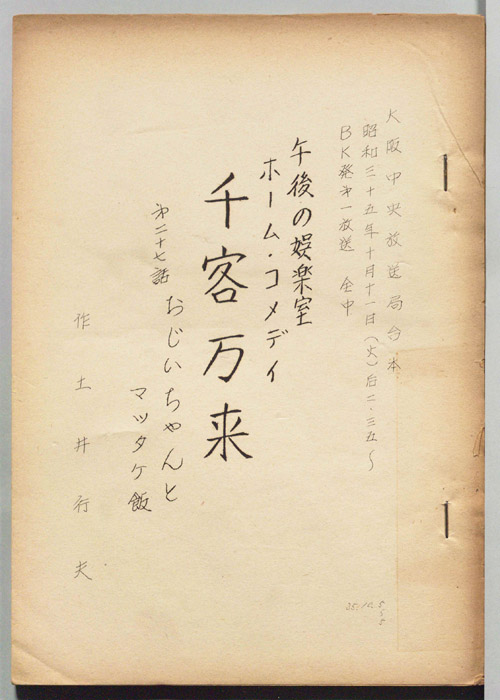 大阪中央放送局台本
昭和三十五年十月十一日(火)后二・三五〜
BK発㐧一放送 全中
午後の娯楽室
ホーム・コメディ
千客万来
㐧二十七話 おじいちゃんと
マツタケ飯
作 土井行夫